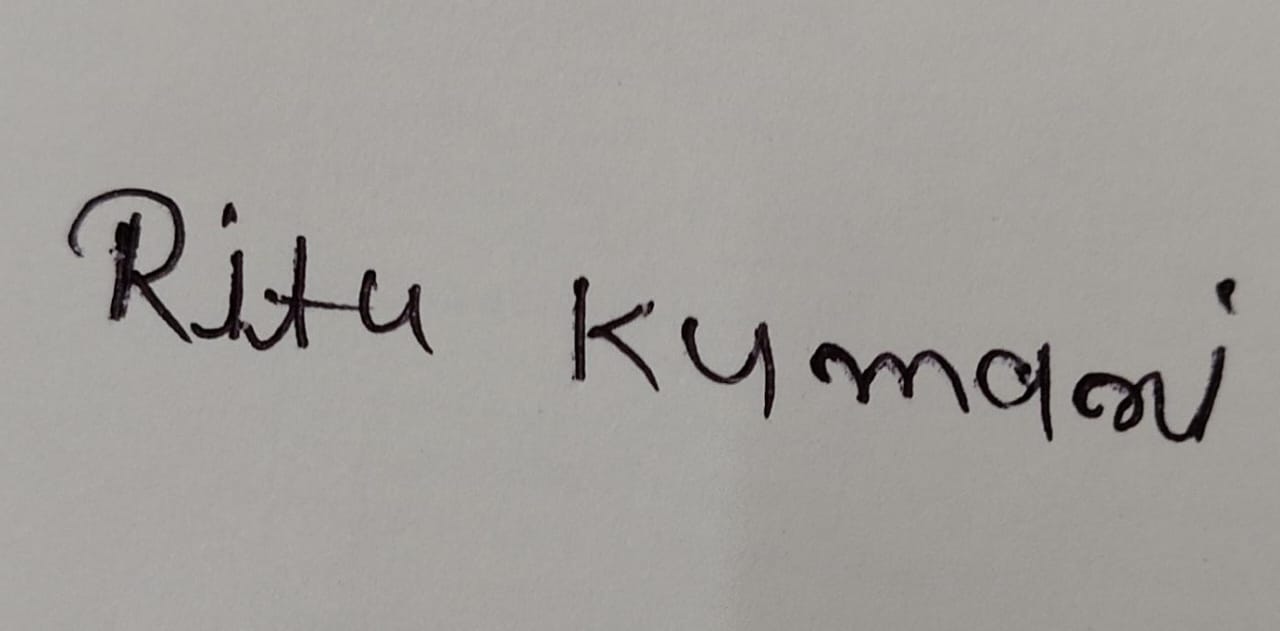 Ritu Kumari